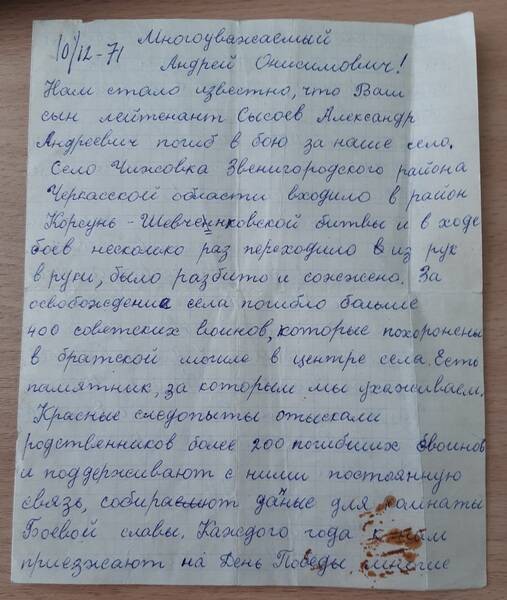 10/12-71 Многоуважаемый
Андрей Онисимович!
Нам стало известно, что Ваш
сын лейтенант Сысоев Александр
Андреевич погиб в бою за наше село.
Село Чижовка Звенигородского района
Черкасской области входило в район
Корсунь-Шевченнковской битвы и в ходе
боев несколько раз переходило из рук
в руки, было разбито и сожжено. За
освобождение села погибло больше
400 советских воинов, которые похоронены
в братской могиле в центре села. Есть
памятник, за которым мы ухаживаем.
Красные следопыты отыскали
родственников более 200 погибших воинов
и поддерживают с ними постоянную
связь, собирают даные для комнаты
Боевой славы. Каждого года к нам
приезжают на День Победы многие